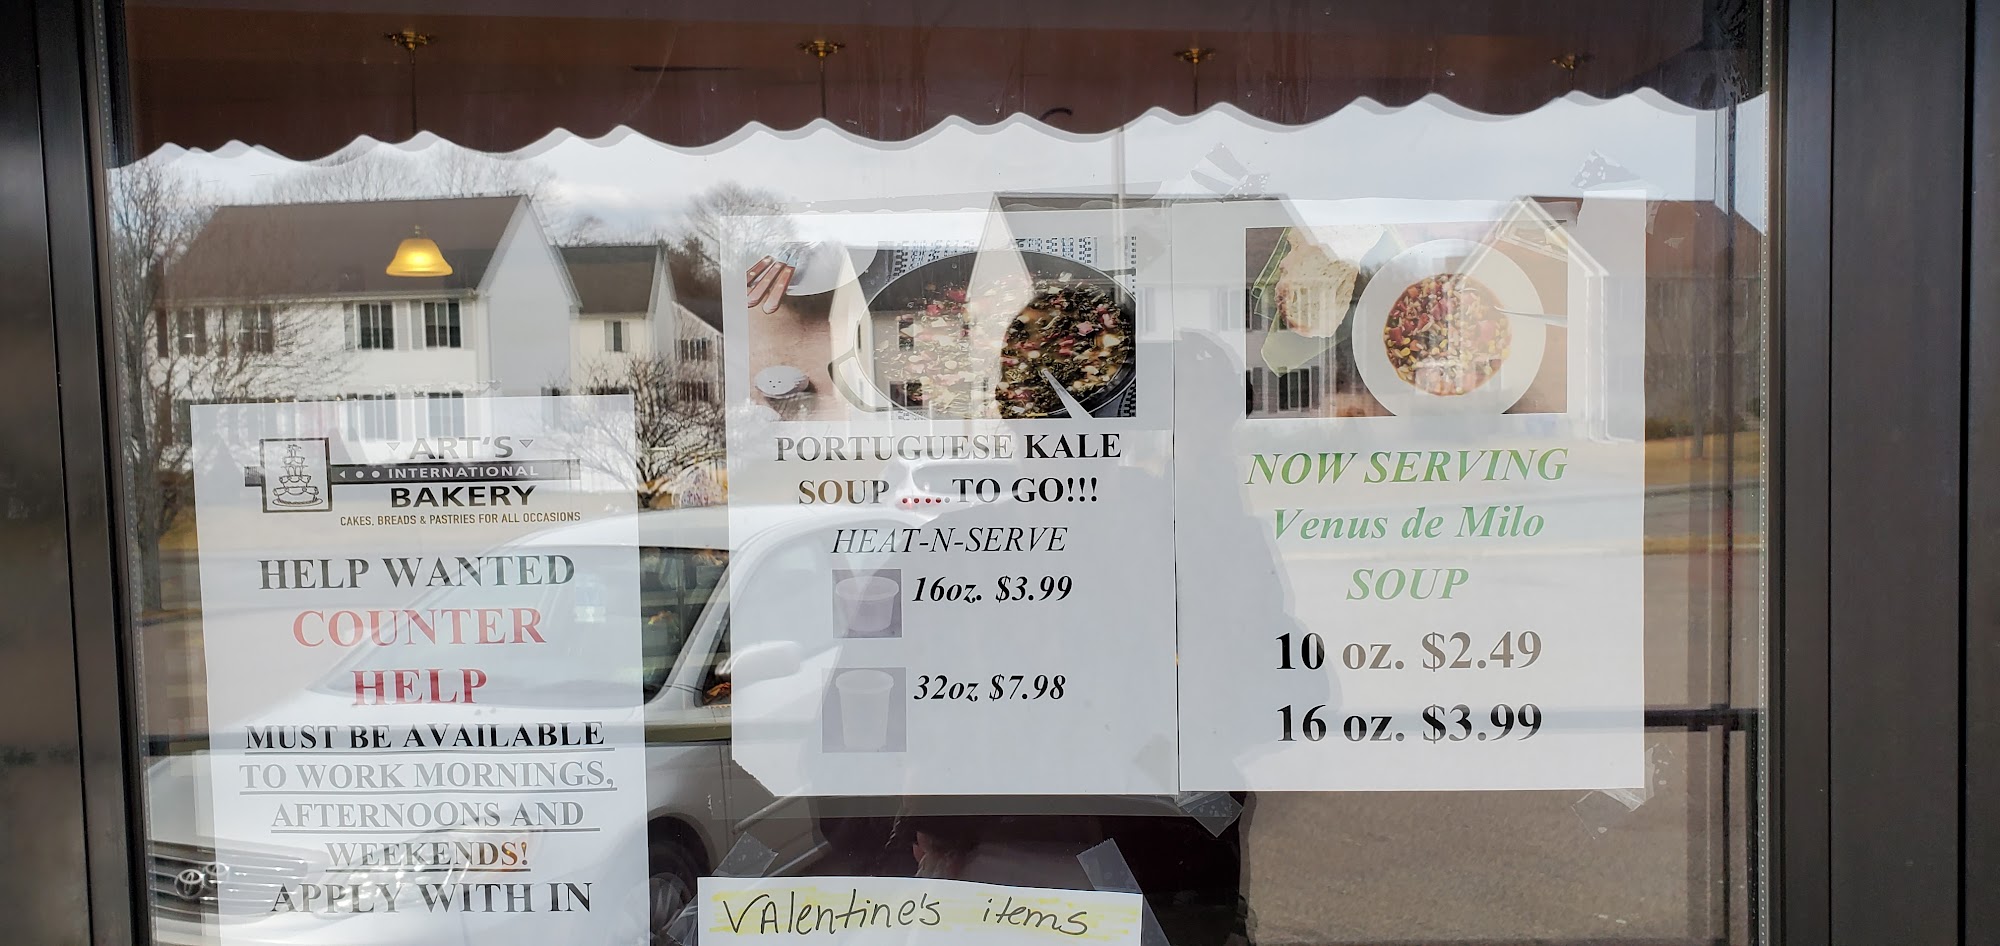 ART'S
INTERNATIONAL
BAKERY
CAKES, BREADS & PASTRIES FOR ALL OCCASIONS
HELP WANTED
COUNTER
HELP
MUST BE AVAILABLE
TO WORK MORNINGS,
AFTERNOONS AND
WEEKENDS!
APPLY WITH IN
PORTUGUESE KALE
SOUP ......TO GO!!!
HEAT-N-SERVE
16oz. $3.99
32oz $7.98
NOW SERVING
Venus de Milo
SOUP
10 oz. $2.49
16 oz. $3.99
Valentine's items